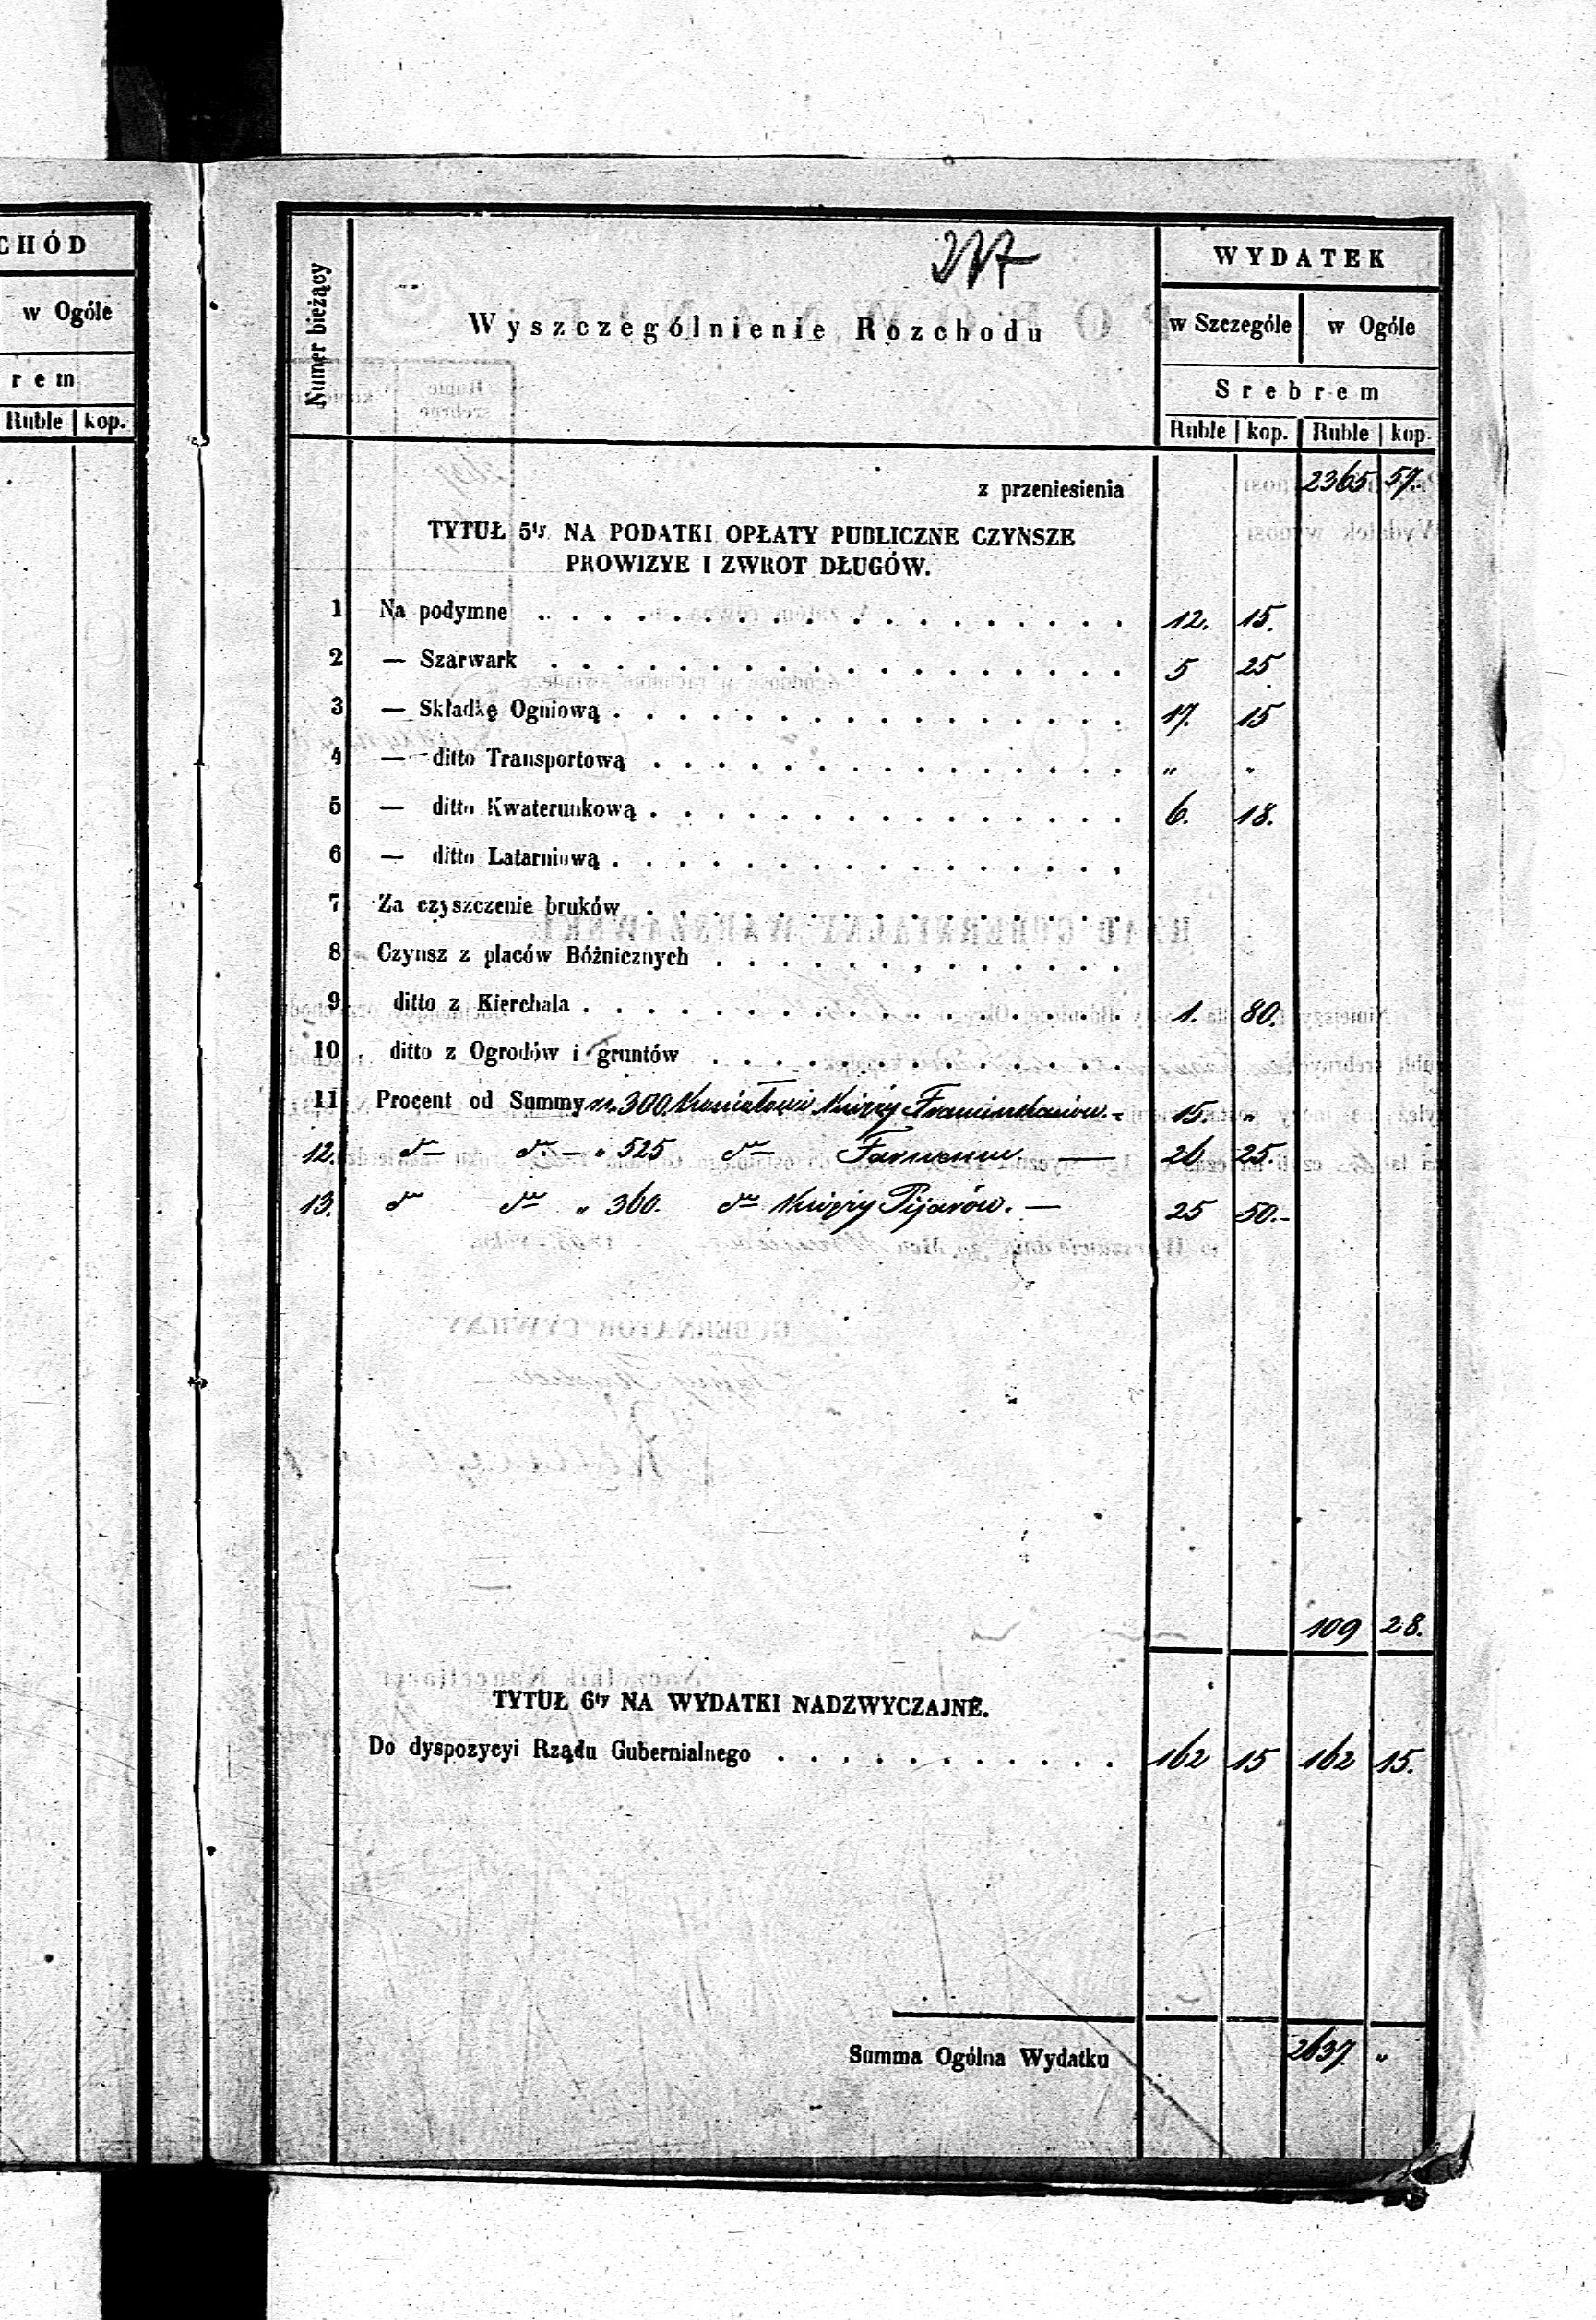 CHÓD
w Ogóle
rem
Ruble kop.
Numer bieżący
Wyszczególnienie Rozchodu
WYDATEK
w Szczególe w Ogóle
Srebrem
Ruble kop. Ruble kop.
z przeniesienia 2365 57.
TYTUŁ 5ty NA PODATKI OPŁATY PUBLICZNE CZYNSZE
PROWIZYE I ZWROT DŁUGÓW.
1 Na podymne . . . 12. 15.
2 — Szarwark . . . 5 25
3 — Składkę Ogniową . . . 17. 15
4 — ditto Transportową . . . „ „
5 — ditto Kwaterunkową . . . 6. 18.
6 — ditto Latarniową . . .
7 Za czyszczenie bruków . . .
8 Czynsz z placów Bóżnicznych . . .
9 ditto z Kierchala . . . 1. 80.
10 ditto z Ogrodów i gruntów . . .
11 Procent od Summy 300 Xięży Franciszkanów. - 15. „
12. dto dto — „ 525 dto — 26 25.
13. dto dto „ 360. dto Xięży Pijarów. — 25 50.-
109 28.
TYTUŁ 6ty NA WYDATKI NADZWYCZAJNE.
Do dyspozycyi Rządu Gubernialnego . . . 162 15 162 15.
Summa Ogólna Wydatku 2637. „